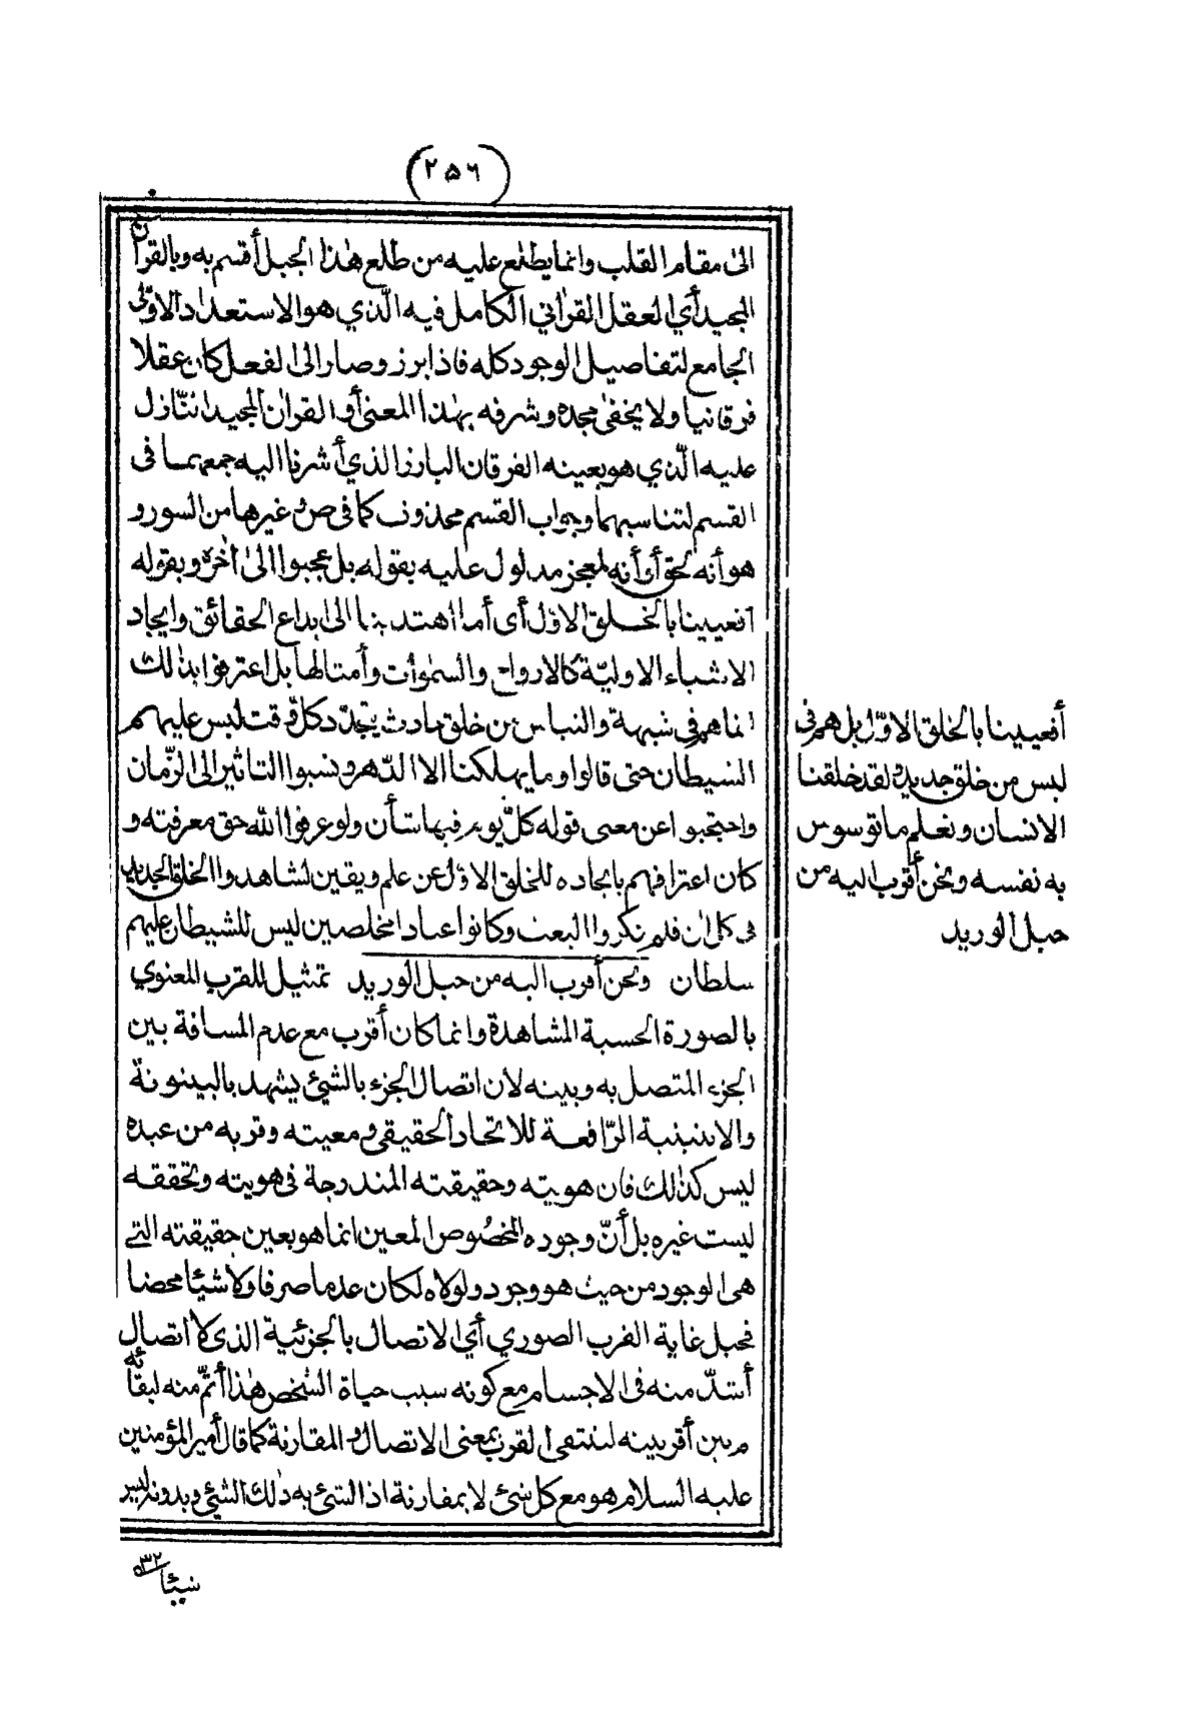 (٢٥٦)
الىٰ مقام القلب وانما يطلع عليه من طلع هٰذا الجبل أقسم به وبالقرآن
المجيد أي العقل القرآني الكامل فيه الّذي هو الاستعداد الاوّلى
الجامع لتفاصيل الوجود كله فاذا برز وصار الى الفعل كان عقلا
فرقانيا ولا يخفىٰ مجده وشرفه بهٰذا المعنى أو القرآن المجيد النّازل
عليه الّذي هو بعينه الفرقان البارز الذي أشرنا اليه جمعهما فى
القسم لتناسبهما وجواب القسم محذوف كما فى ص و غيرها من السور و
هو أنه لحق أو أنه لمعجز مدلول عليه بقوله بل عجبوا الىٰ آخره وبقوله
أفعيينا بالخلق الاوّل أى أما اهتدينا الى ابداع الحقائق وايجاد
الاشياء الاوليّة كالارواح والسمٰوات وأمثالها بل اعترفوا بذٰلك
انما هم في شبهة والتباس من خلق حادث يتجدّد كل وقت لبس عليهم
الشيطان حتى قالوا وما يهلكنا الا الدّهر ونسبوا التاثير الى الزّمان
واحتجبوا عن معنى قوله كلّ يوم فيها شأن ولو عرفوا الله حق معرفته و
كان اعترافهم بايجاده للخلق الاوّل عن علم ويقين لشاهدوا الخلق الجديد
فى كل اٰن فلم ينكروا البعث وكانوا عبادا مخلصين ليس للشيطان عليهم
سلطان ونحن أقرب اليه من حبل الوريد تمثيل للقرب المعنوي
بالصورة الحسية المشاهدة وانما كان أقرب مع عدم المسافة بين
الجزء المتصل به وبينه لان اتصال الجزء بالشيئ يشهد بالبينونة
والاثنينية الرّافعة للاتحاد الحقيقى ومعيته وقربه من عبده
ليس كذٰلك فان هويته وحقيقته المندرجة فى هويته وتحققه
ليست غيره بل أنّ وجوده المخصُوص المعين انما هو بعين حقيقته التے
هى الوجود من حيث هو وجود ولولاه لكان عدما صرفا ولا شيئا محضا
فحبل غاية القرب الصوري أي الاتصال بالجزئية الذى لا اتصال
أشدّ منه فى الاجسام مع كونه سبب حياة الشخص هٰذا أتمّ منه لبقائه
بين أقربيته لينتفى القرب بمعنى الاتصال والمقارنة كما قال أمير المؤمنين
عليه السلام هو مع كل شئ لا بمقارنة اذ الشئ به ذٰلك الشيئ وبدونه ليس
شيئا
أفعيينا بالخلق الاوّل بل هم فى
لبس من خلق جديد ولقد خلقنا
الانسان ونعلم ما توسوس
به نفسه ونحن أقرب اليه من
حبل الوريد